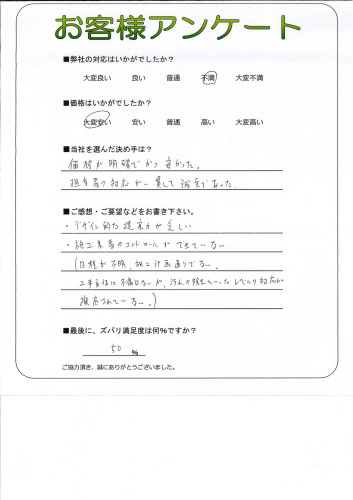 お客様アンケート
■弊社の対応はいかがでしたか?
大変良い 良い 普通 不満 大変不満
■価格はいかがでしたか?
大変安い 安い 普通 高い 大変高い
■当社を選んだ決め手は?
価格が明確でかつ安かった。
担当者の対応が一貫して誠実であった.
■ご感想・ご要望などをお書き下さい。
・デザイン的な提案力が乏しい
・施工業者のコントロールができていない
(日程が不明,施工計画通りでない.
工事自体に不備はないが,
徹底されていない.)
■最後に、ズバリ満足度は何%ですか?
50 %
ご協力頂き、誠にありがとうございました。